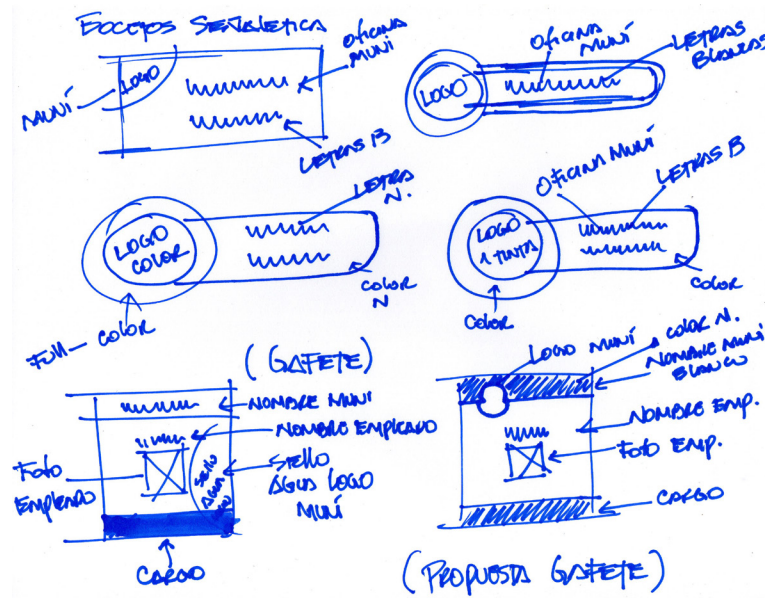 BOCETOS SEÑALÉTICA
LOGO
MUNÍ
OFICINA
MUNI
LETRAS B
LOGO
OFICINA
MUNÍ
LETRAS
BLANCAS
LOGO
COLOR
LETRA
N.
COLOR
N
FULL COLOR
LOGO
1 TINTA
OFICINA MUNÍ
LETRAS B
COLOR
COLOR
(GAFETE)
NOMBRE MUNI
NOMBRE EMPLEADO
FOTO
EMPLEADO
SELLO
AGUA
SELLO
AGUA LOGO
MUNÍ
CARGO
LOGO MUNÍ
COLOR N.
NOMBRE MUNI
BLANCO
NOMBRE EMP.
FOTO EMP.
CARGO
(PROPUESTA GAFETE)